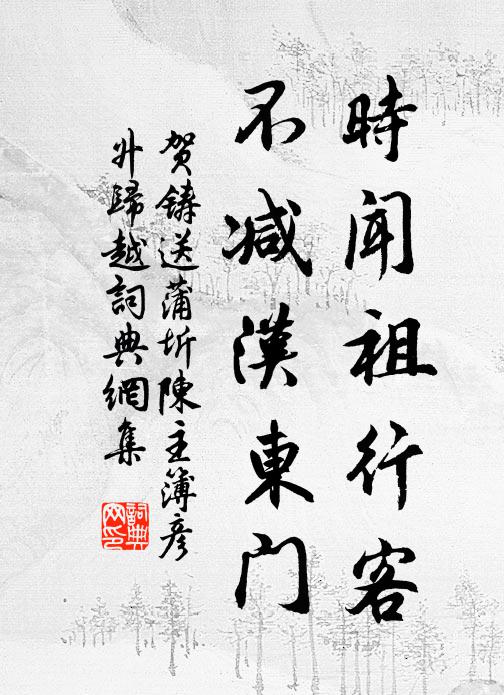 時闻祖行客
不减漢東门
贺鑄送蒲圻陳主簿彦
升歸越詞典網集
詞典
网印